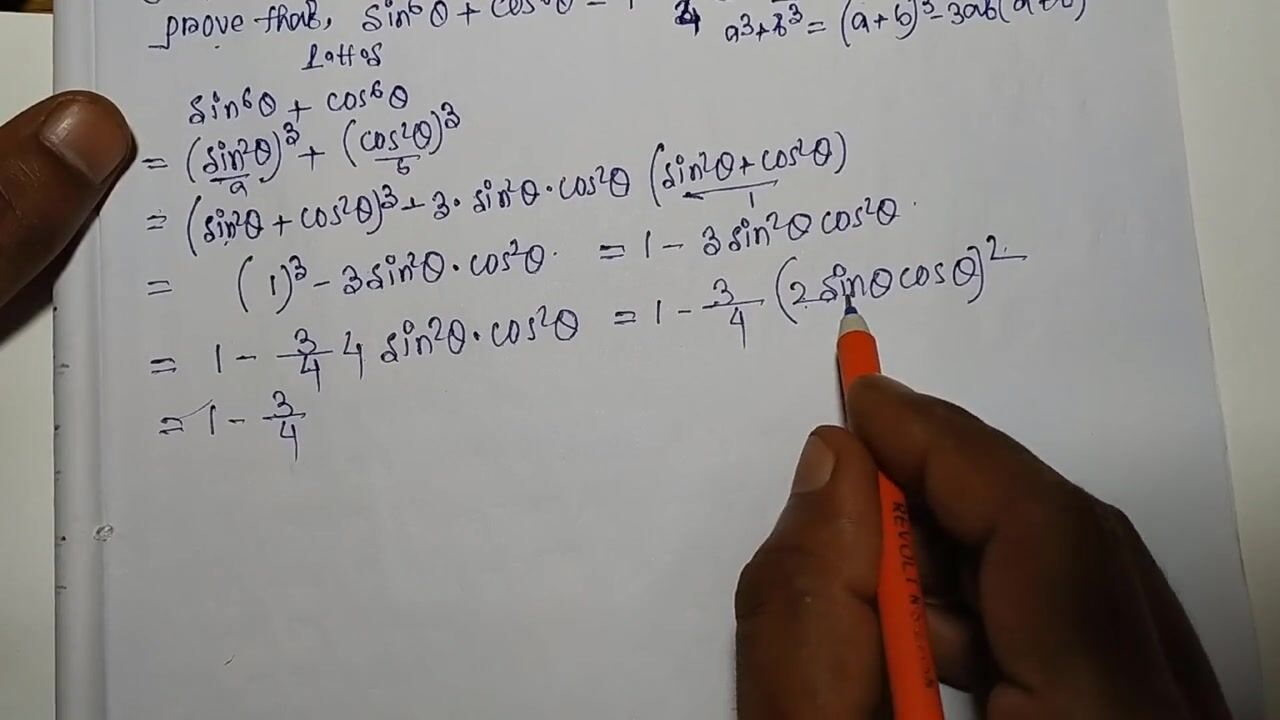 prove that, sin⁶θ + cos⁶θ = 1
a³+b³ = (a+b)³-3ab(a+b)
L.H.S
sin⁶θ + cos⁶θ
= (sin²θ)³ + (cos²θ)³
a b
= (sin²θ + cos²θ)³ - 3·sin²θ·cos²θ (sin²θ+cos²θ)
1
= (1)³ - 3sin²θ·cos²θ· = 1 - 3sin²θcos²θ·
= 1 - 3/4 4 sin²θ·cos²θ = 1 - 3/4 (2sinθcosθ)²
= 1 - 3/4
REVOLT